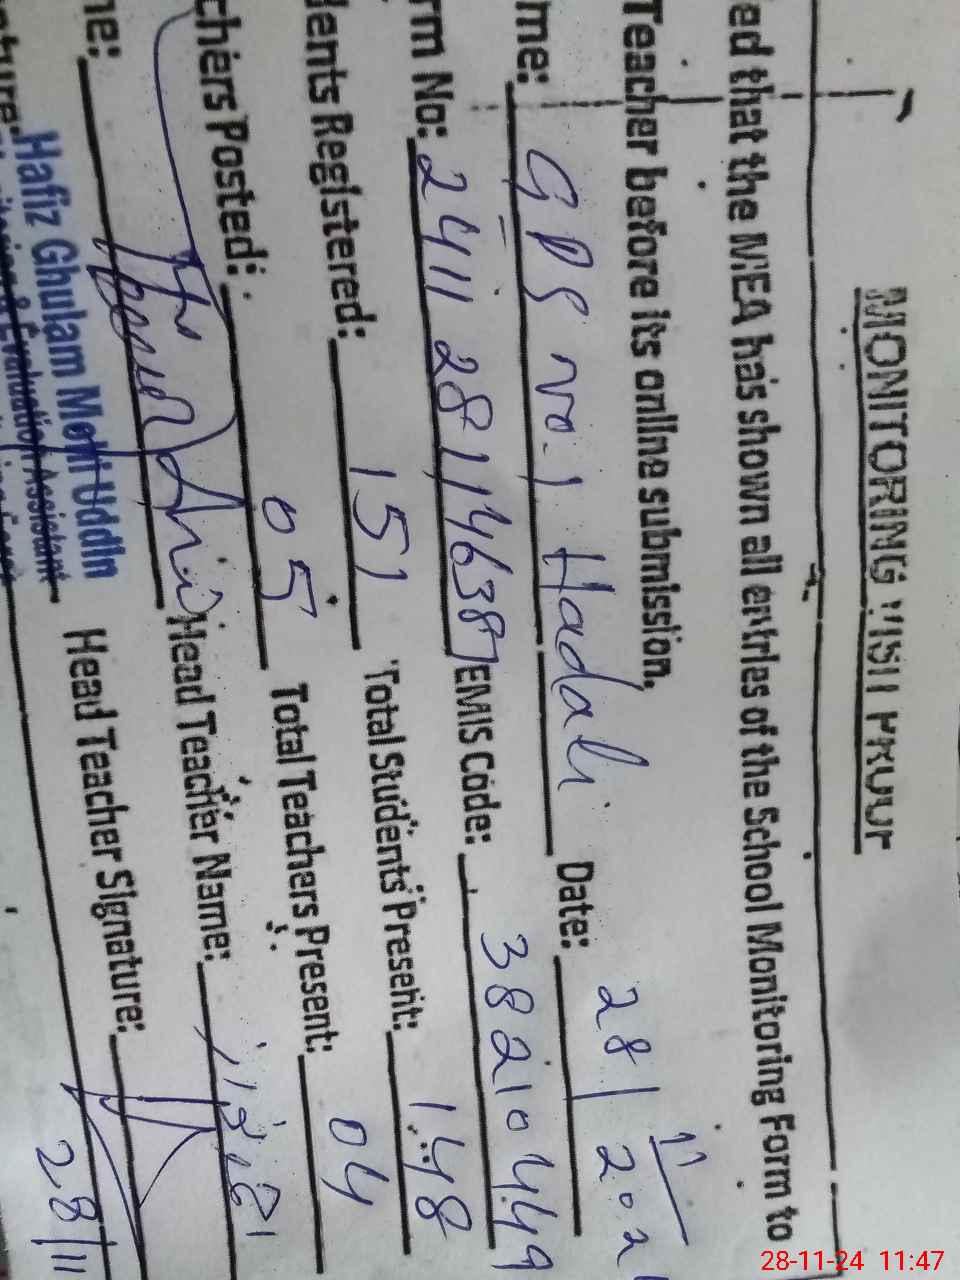 MONITORING VISIT PROOF
ed that the MEA has shown all entries of the School Monitoring Form to
Teacher before its online submission.
me: GPS No.1 Hadali Date: 28/11/202
rm No: 2411 28114638 EMIS Code: 38210449
dents Registered: 151 Total Students Present: 148
chers Posted: 05 Total Teachers Present: 04
me: Head Teacher Name:
Hafiz Ghulam Mohi Uddin
Monitoring & Evaluation Assistant
Head Teacher Signature:
28/11
28-11-24 11:47